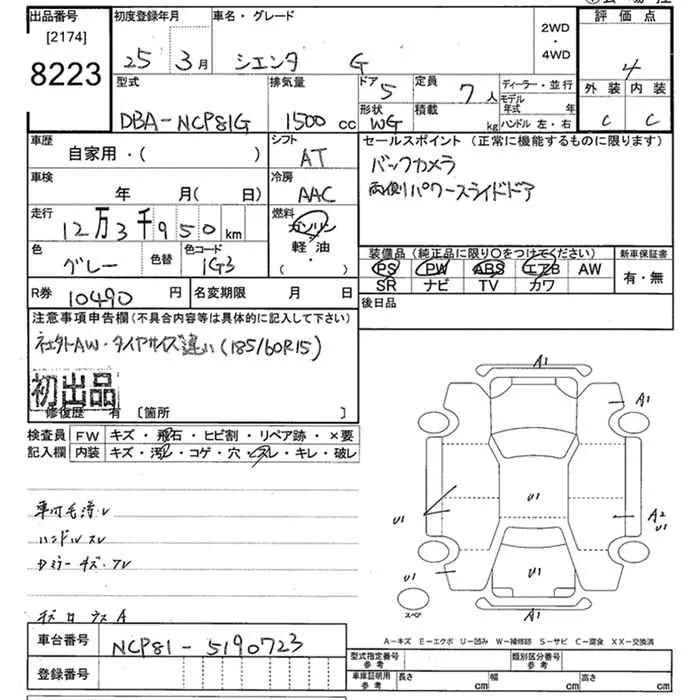 出品番号 初度登録年月 車名・グレード 2WD・4WD 評価点
[2174]
8223
25 3月 シエンタ G 4
型式 排気量 ドア 5 定員 7人 ディーラー・並行 外装 内装
DBA-NCP81G 1500cc 形状 WG 積載 kg モデル年式 年 ハンドル 左・右 C C
車歴 自家用・( ) シフト AT セールスポイント (正常に機能するものに限ります)
バックカメラ
両側パワースライドドア
車検 年 月( 日) 冷房 AAC
走行 12万3千950km 燃料 ガソリン 軽油 ( ・ )
色 グレー 色替 色コード 1G3
装備品 (純正品に限り○をつけてください) 新車保証書
PS PW ABS エアB AW 有・無
SR ナビ TV カワ
R券 10490円 名変期限 月 日 後日品
注意事項申告欄(不具合内容等は具体的に記入して下さい)
社外AW・タイヤサイズ違い(185/60R15)
初出品
修復歴 有 [箇所 ]
検査員 FW キズ・飛石・ヒビ割・リペア跡・×要
記入欄 内装 キズ・汚レ・コゲ・穴・スレ・キレ・破レ
ハンドルスレ
A1
A1
U1
U1
A2
U1
U1
U1
A1
スペア
A-キズ E-エクボ U-凹み W-補修跡 S-サビ C-腐食 XX-交換済
車台番号 NCP81-5190723
登録番号
型式指定番号 参考 類別区分番号 参考
車庫証明用 参考 長さ cm 幅 cm 高さ cm